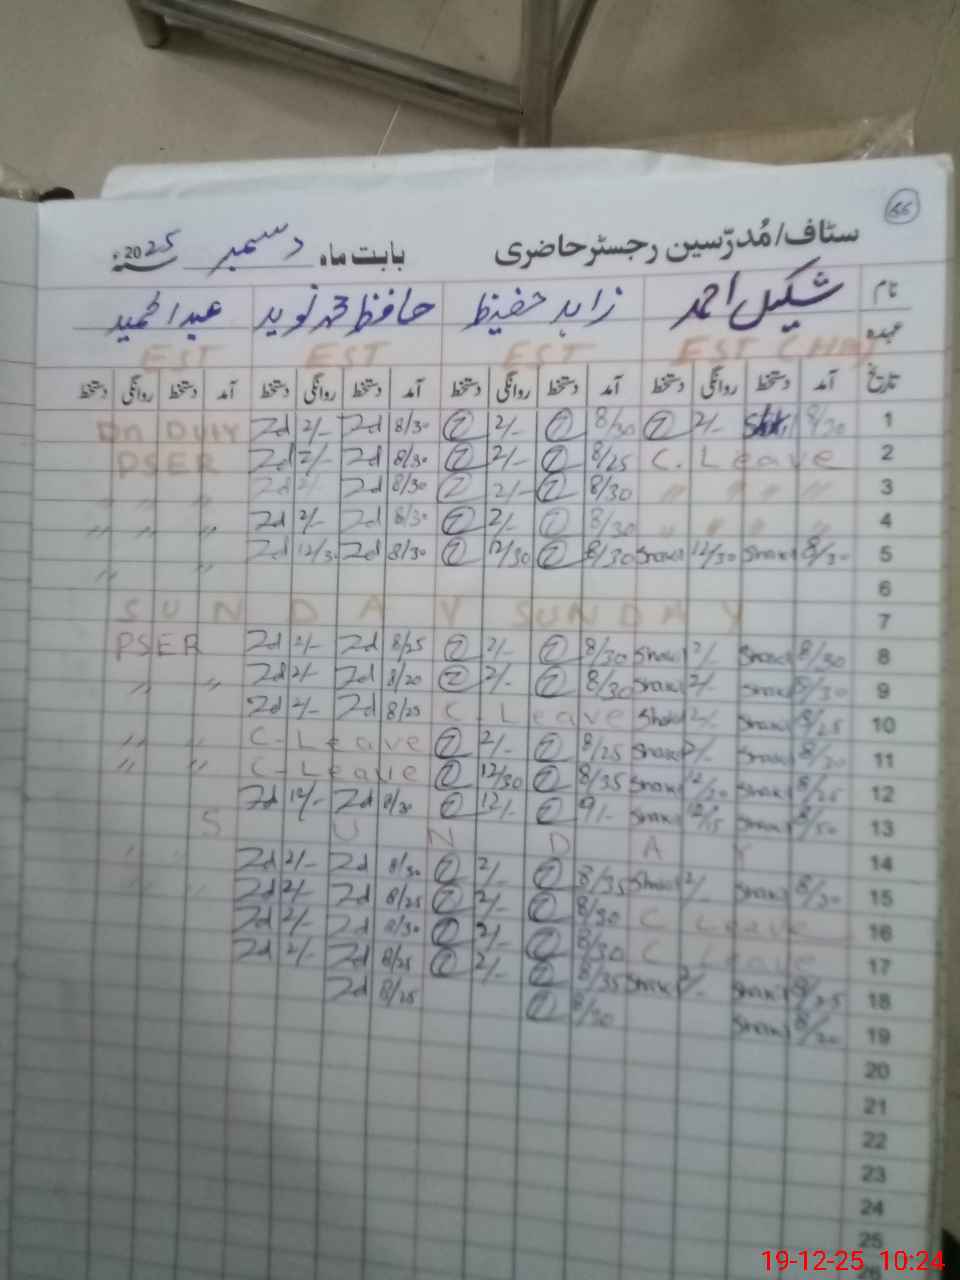 66
سٹاف/مُدرّسین رجسٹر حاضری بابت ماہ دسمبر 2025ء
نام شکیل احمد زاہد حفیظ حافظ محمد نوید عبدالحمید
عہدہ EST (HM) EST EST EST
تاریخ آمد دستخط روانگی دستخط آمد دستخط روانگی دستخط آمد دستخط روانگی دستخط آمد دستخط روانگی دستخط
1 8/30 2/- 8/30 2/- 8/30 Zd 2/- Zd On Duty
2 C. Leave 8/25 2/- 8/30 Zd 2/- Zd PSER
3 " " " " 8/30 2/- 8/30 Zd 2/- Zd " " "
4 " " " " 8/30 2/- 8/30 Zd 2/- Zd " " "
5 8/30 Shakl 12/30 Shakl 8/30 12/30 8/30 Zd 12/30 Zd " "
6
7 SUNDAY SUNDAY
8 8/30 Shakl 2/- Shakl 8/30 2/- 8/25 Zd 2/- Zd PSER
9 8/30 Shakl 2/- Shakl 8/30 2/- 8/20 Zd 2/- Zd " "
10 8/25 Shakl 2/- Shakl C. Leave 8/25 Zd 2/- Zd
11 8/30 Shakl 2/- Shakl 8/25 2/- C. Leave " "
12 8/25 Shakl 12/30 Shakl 8/35 12/30 C. Leave " "
13 Shakl 12/15 Shakl 9/- 12/- 8/30 Zd 12/- Zd
14 SUNDAY
15 8/30 Shakl 2/- Shakl 8/35 2/- 8/30 Zd 2/- Zd
16 C Leave 8/30 2/- 8/25 Zd 2/- Zd
17 C Leave 8/30 2/- 8/30 Zd 2/- Zd
18 8/25 Shakl 2/- Shakl 8/35 2/- 8/25 Zd 2/- Zd
19 8/30 Shakl 8/30 8/25 Zd
20
21
22
23
24
25
19-12-25 10:24